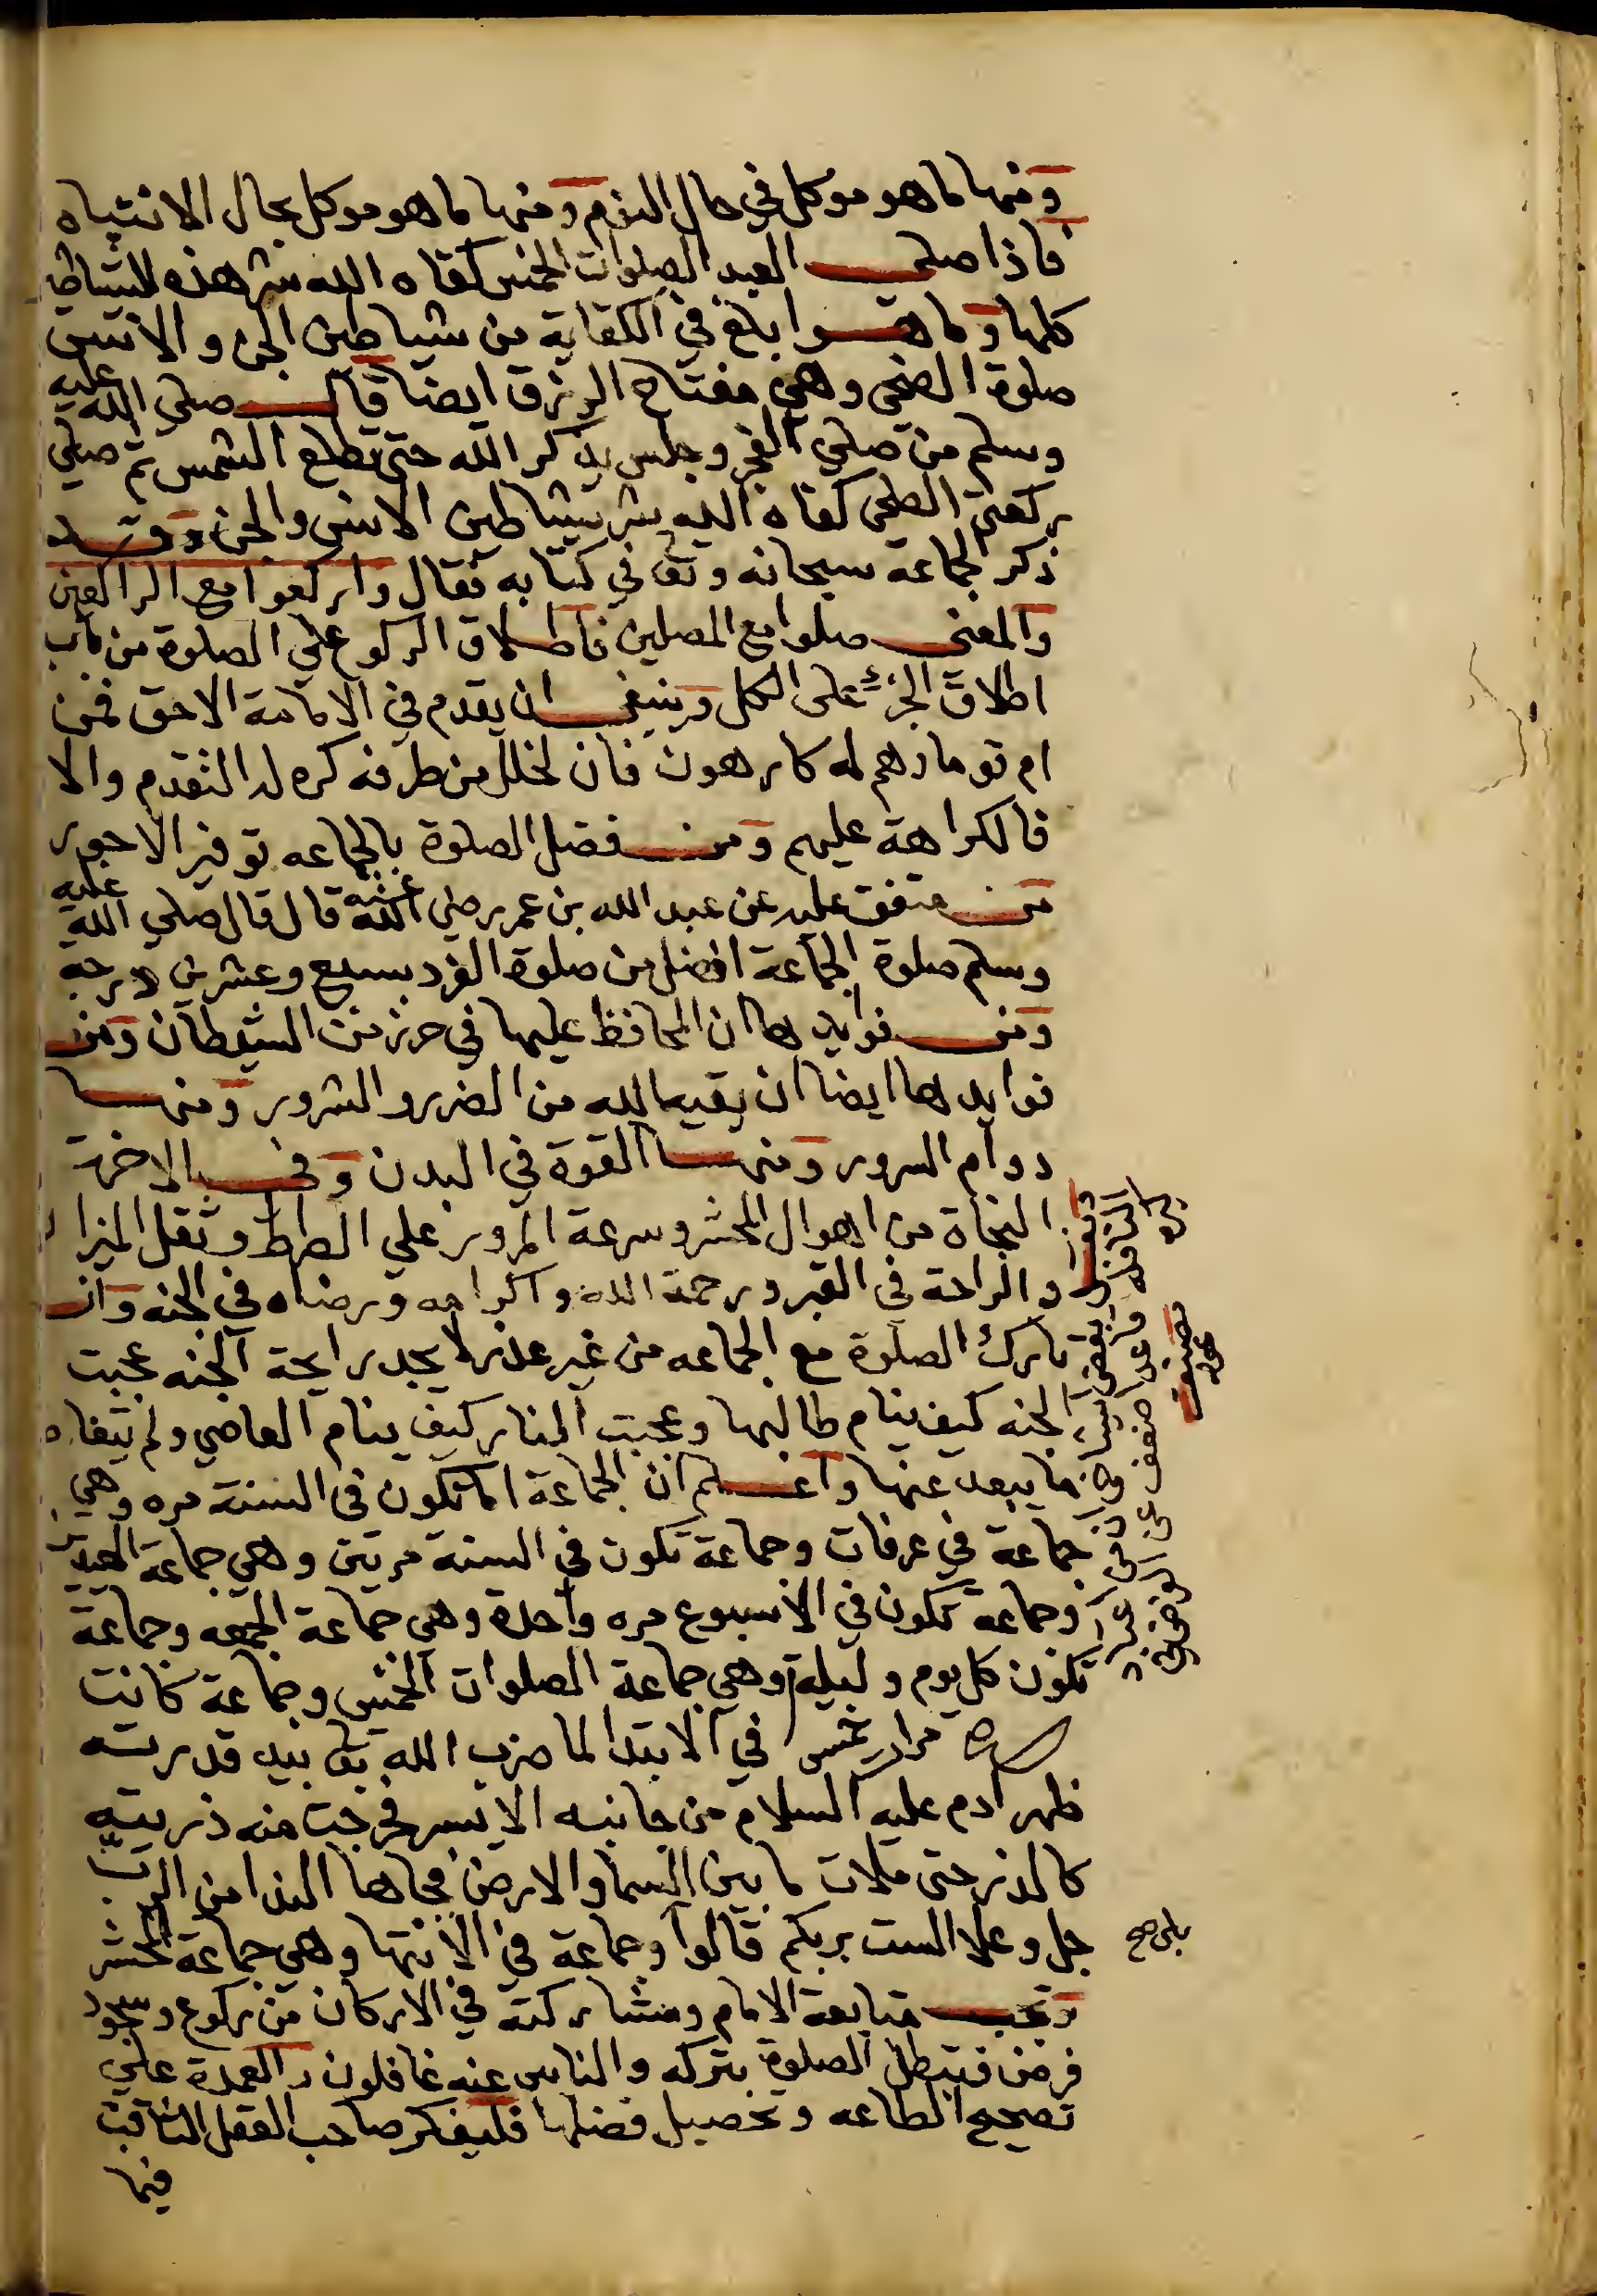 ومنها ما هو موكل في حال النوم ومنها ما هو موكل بحال الانتباه
فاذا صلى العبد الصلوات الخمس كفاه الله شر هذه الشياطين
كلها وما هو ابلغ في الكفاية من شياطين الجن والانس
صلوة الضحى وهي مفتاح الرزق ايضا قال صلي الله عليه
وسلم من صلي الفجر وجلس يذكر الله حتى تطلع الشمس ثم صلي
ركعتي الضحى كفاه الله شر شياطين الانس والجن وقد
ذكر الجماعة سبحانه وتعا في كتابه فقال واركعوا مع الراكعين
والمعنى صلوا مع المصلين فاطلاق الركوع علي الصلوة من باب
اطلاق الجزء على الكل وينبغي ان يقدم في الامامة الاحق فمن
ام قوما وهم له كارهون فان لخلل من طرفه كره له التقدم والا
فالكراهة عليهم ومن فضل الصلوة بالجماعه توفير الاجور
من متفق عليه عن عبد الله بن عمر رضي الله عنه قال قال صلي الله عليه
وسلم صلوة الجماعة افضل من صلوة الفرد بسبع وعشرين درجه
ومن فوايدها ان المحافظ عليها في حرز من الشيطان ومن
فوايدها ايضا ان يقيه الله من الضرر والشرور ومنها
دوام السرور ومنها القوة في البدن وفي الاخرة
النجاة من اهوال المحشر وسرعة المرور علي الصراط وثقل الميزان
والراحة في القبر ورحمة الله واكرامه ورضاه في الجنه وان
تارك الصلوة مع الجماعه من غير عذر لا يجد رايحة الجنه عجبت
الجنه كيف ينام طالبها وعجبت النار كيف ينام العاصي ولم يتفاد
ما يبعد عنها واعلم ان الجماعة اما تكون في السنة مره وهي
جماعة في عرفات وجماعة تكون في السنة مرتين وهي جماعة العيد
وجماعة تكون في الاسبوع مره واحدة وهي جماعة الجمعه وجماعة
تكون كل يوم وليلة وهي جماعة الصلوات الخمس وجماعة كانت
مرار خمس في الابتدا لما ضرب الله تعا بيد قدرته
ظهر ادم عليه السلام من جانبه الايسر فخرجت منه ذريته
كالذر حتى ملات ما بين السما والارض فجاها الندا من الرب
جل وعلا الست بربكم قالوا وجماعة في الانتها وهي جماعة الحشر
بلى صح
وتجب متابعة الامام ومشاركته في الاركان من ركوع وسجود
فرض فتبطل الصلوة بتركه والناس عنه غافلون والعمدة علي
تصحيح الطاعه وتحصيل فضلها فليفكر صاحب العقل الثاقب
فيما